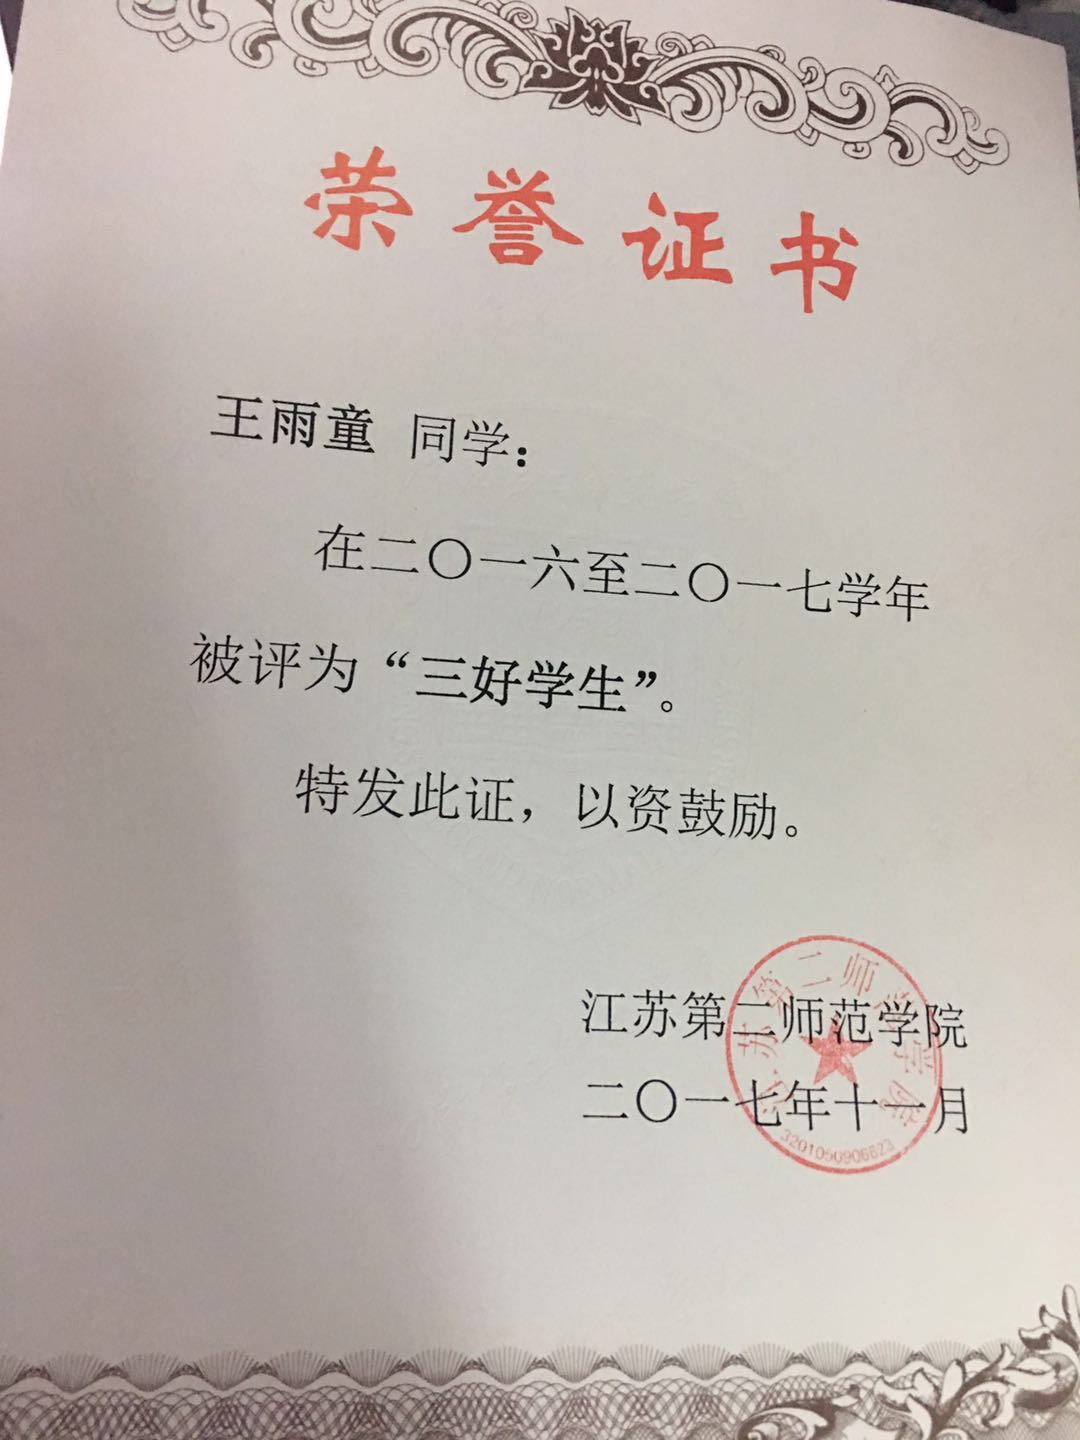 荣誉证书
王雨童 同学：
在二〇一六至二〇一七学年
被评为“三好学生”。
特发此证，以资鼓励。
江苏第二师范学院
二〇一七年十一月
江苏第二师范学院
3201050906623